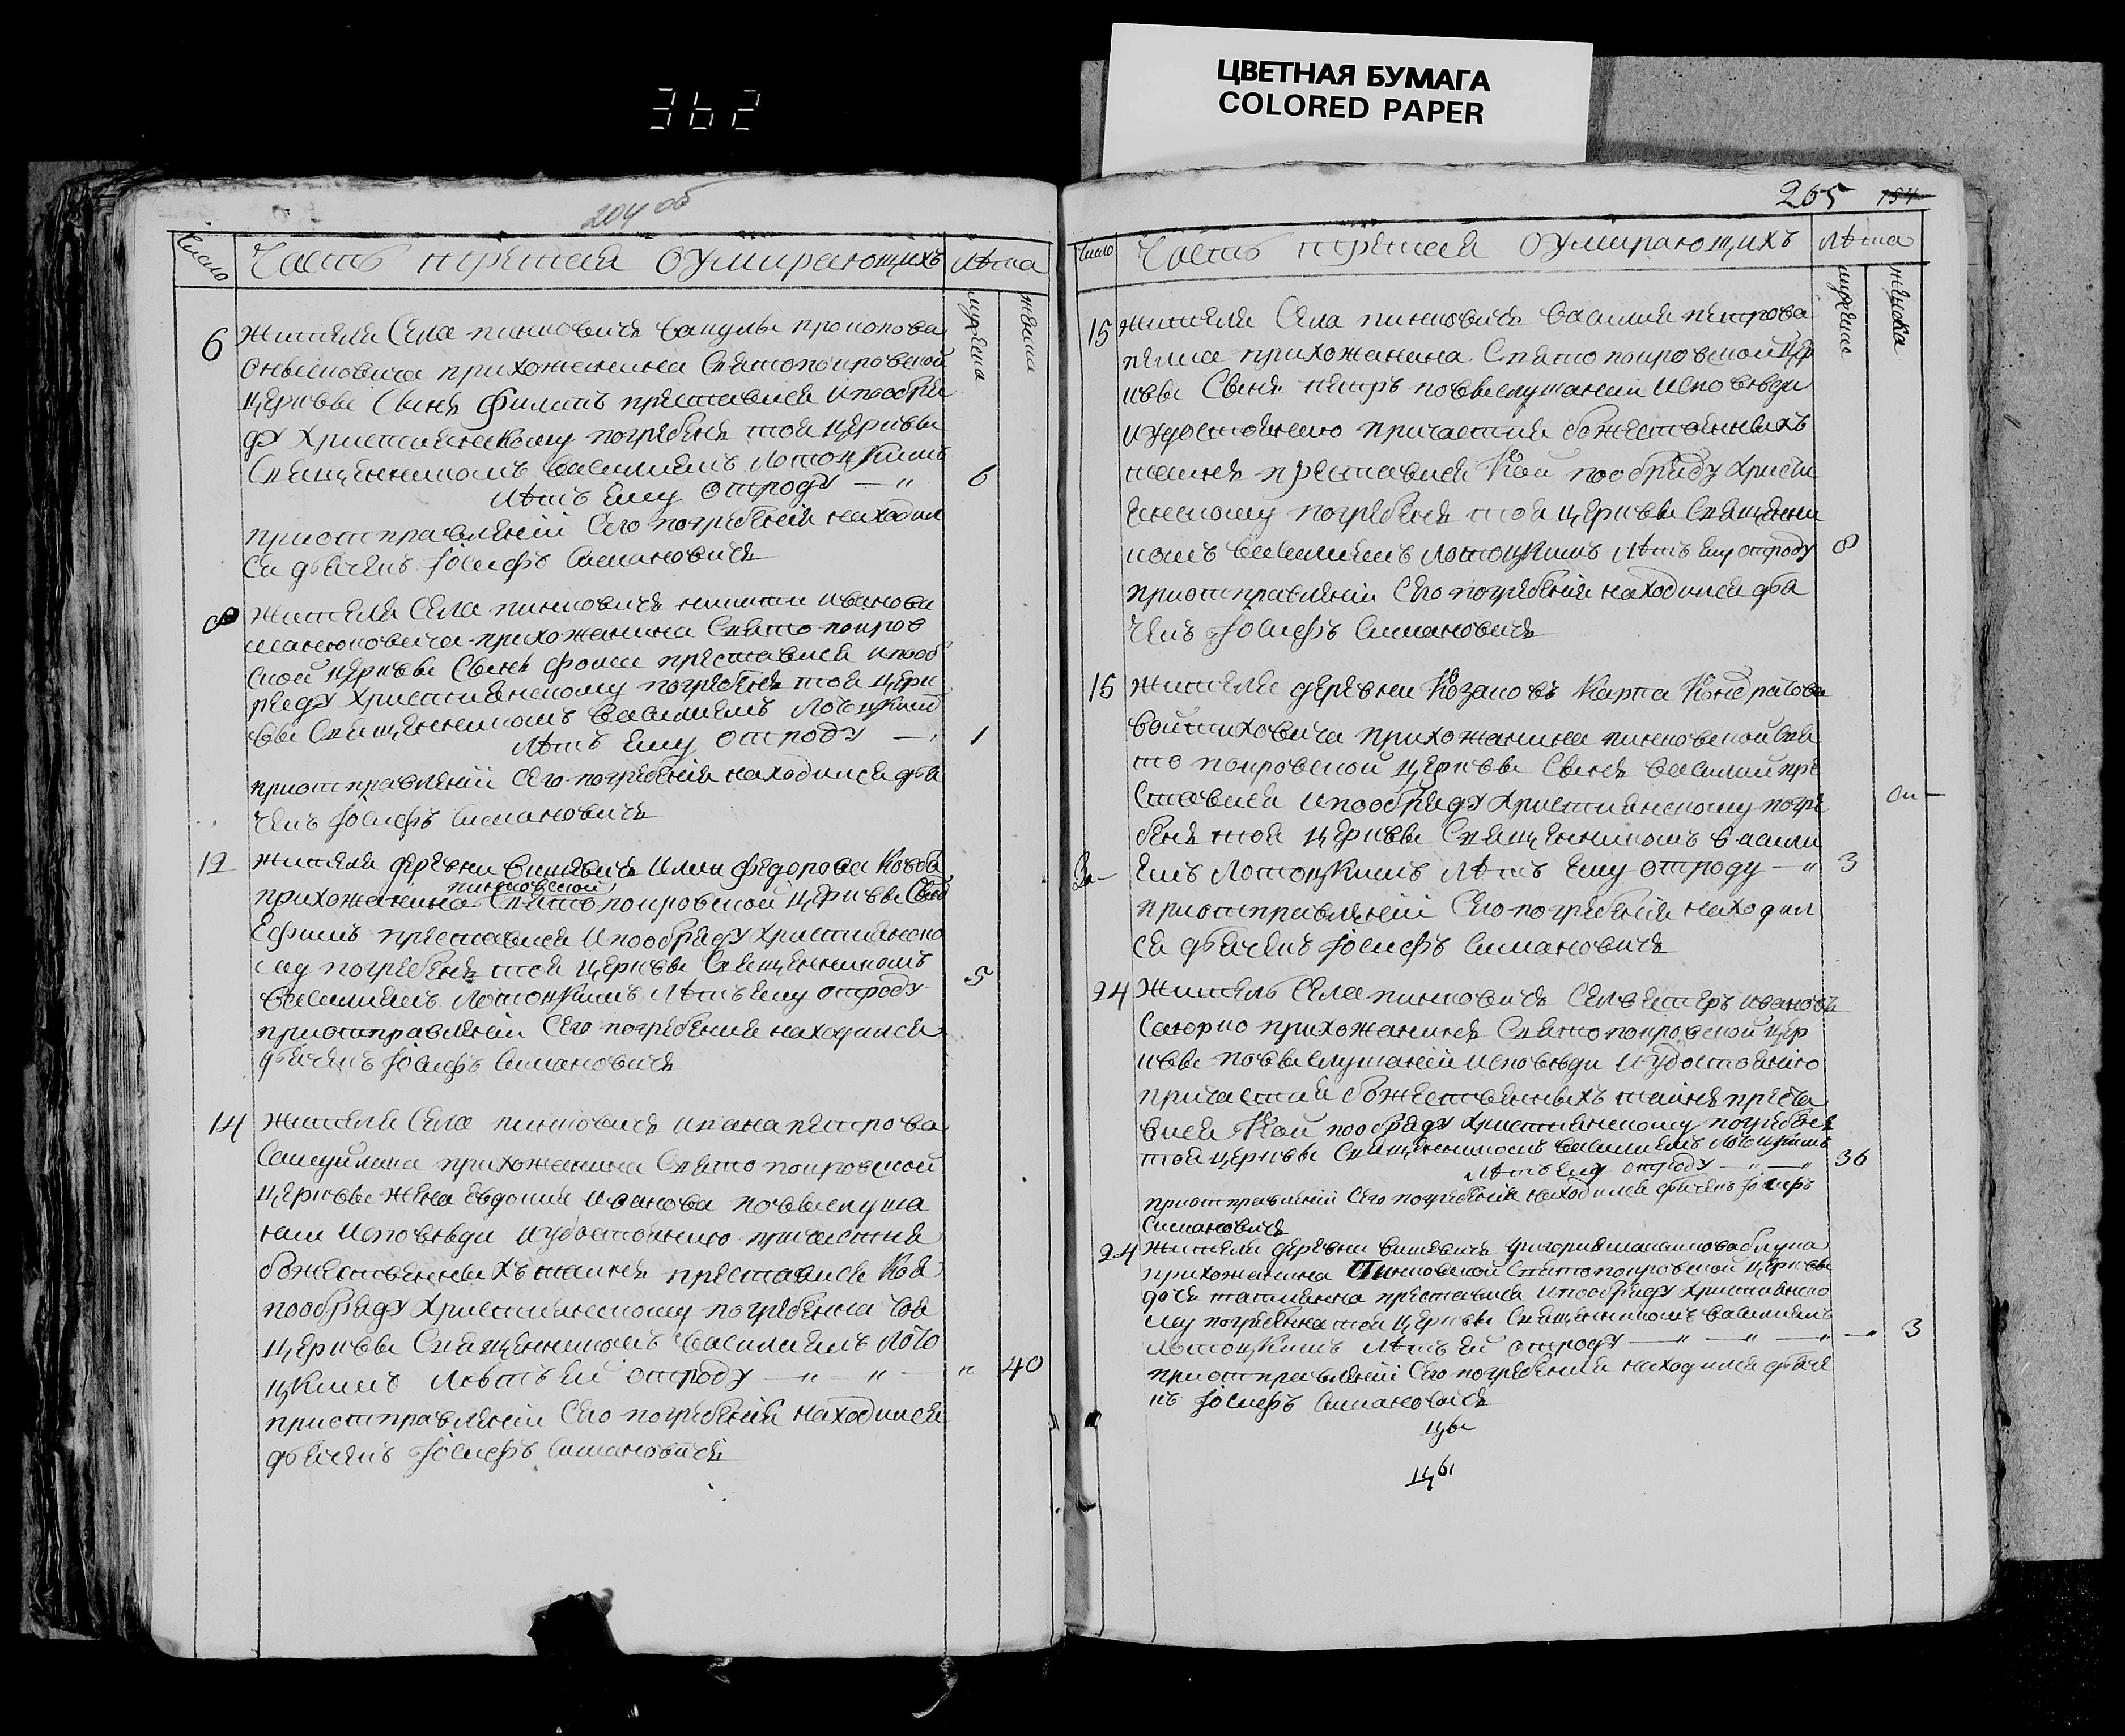 ЦВЕТНАЯ БУМАГА
COLORED PAPER
362
204 об
Число
Часть третья о умирающихъ
лѣта
мужеска
женска
6
жителя Села пинковичъ вакулы прокопова
прихожанина Святопокровской
церквы Сынъ филипъ преставися и пообря
ду християнскому погребенъ тоя церквы
Священникомъ василиемъ Лотоцкимъ
лѣтъ ему отроду — „
6
приотправленїи Сего погребенїя находил
ся дьячекъ Іосифъ симановичъ
8
жителя Села пинковичъ никиты иванова
прихожанина Свято покров
ской церквы Сынъ фома преставися и пооб
ряду християнскому погребенъ тоя церк
вы Священникомъ василиемъ Лотоцким
лѣтъ ему отроду —
1
приотправленїи Сего погребенїя находился дья
чекъ Іосифъ симановичъ
12
жителя деревни вишевичъ Илии федорова
пинковской
прихожанина Святопокровской церквы Сынъ
Ефимъ преставися и пообряду християнско
му погребенъ тоя церквы Священникомъ
василиемъ Лотоцкимъ лѣтъ ему отроду
5
приотправленїи Сего погребения находился
дьячекъ Іосифъ симановичъ
14
жителя Села пинковичъ ивана петрова
прихожанина Свято покровской
церквы жена евдокия иванова повыслуша
нии исповѣди иудостоению причастия
божественныхъ таинъ преставися Коя
пообряду християнскому погребенна тоя
церквы Священникомъ василиемъ Лото
цкимъ лѣтъ ей отроду — „ — „ —
„ 40
приотправленїи Сего погребенїя находился
дьячекъ Іосифъ симановичъ
205 154
Число
Часть третья о умирающихъ
лѣта
мужеска
женска
15
жителя Села пинковичъ василия петрова
прихожанина Святопокровской цер
квы Сынъ петръ повыслушании исповѣди
иудостоению причастия божественныхъ
таинъ преставися Кой пообряду христи
енскому погребенъ тоя церквы Священни
комъ василиемъ Лотоцкимъ лѣтъ ему отроду
8
приотправленїи Сего погребенїя находился дья
чекъ Іосифъ симановичъ
15
жителя деревни Козляковъ Карпа Кондратова
войтиховича прихожанина пинковской Свя
то покровской церквы Сынъ василий пре
ставися и пообряду християнскому погре
бенъ тоя церквы Священникомъ васили
емъ Лотоцкимъ лѣтъ ему отроду — „
3
приотправленїи Сего погребенїя находил
ся дьячекъ Іосифъ симановичъ
24
Житель Села пинковичъ Селвестеръ ивановъ
прихожанинъ Святопокровской цер
квы повыслушанїи исповѣди и удостоению
причастия божественныхъ таинъ преста
вися Кой пообряду християнскому погребенъ
тоя церквы Священникомъ василиемъ Лотоцкимъ
лѣтъ ему отроду — „ — „
36
приотправленїи Сего погребенїя находился дьячекъ Іосифъ
симановичъ
24
Жителя деревни вишевичъ григория
прихожанина Пинковской Святопокровской церквы
дочь татиянна преставися и пообряду християнско
му погребенна тоя церквы Священникомъ василиемъ
Лотоцкимъ лѣтъ ей отроду — „ — „ — „ — „
3
приотправленїи Сего погребения находился дьяче
къ Іосифъ симановичъ